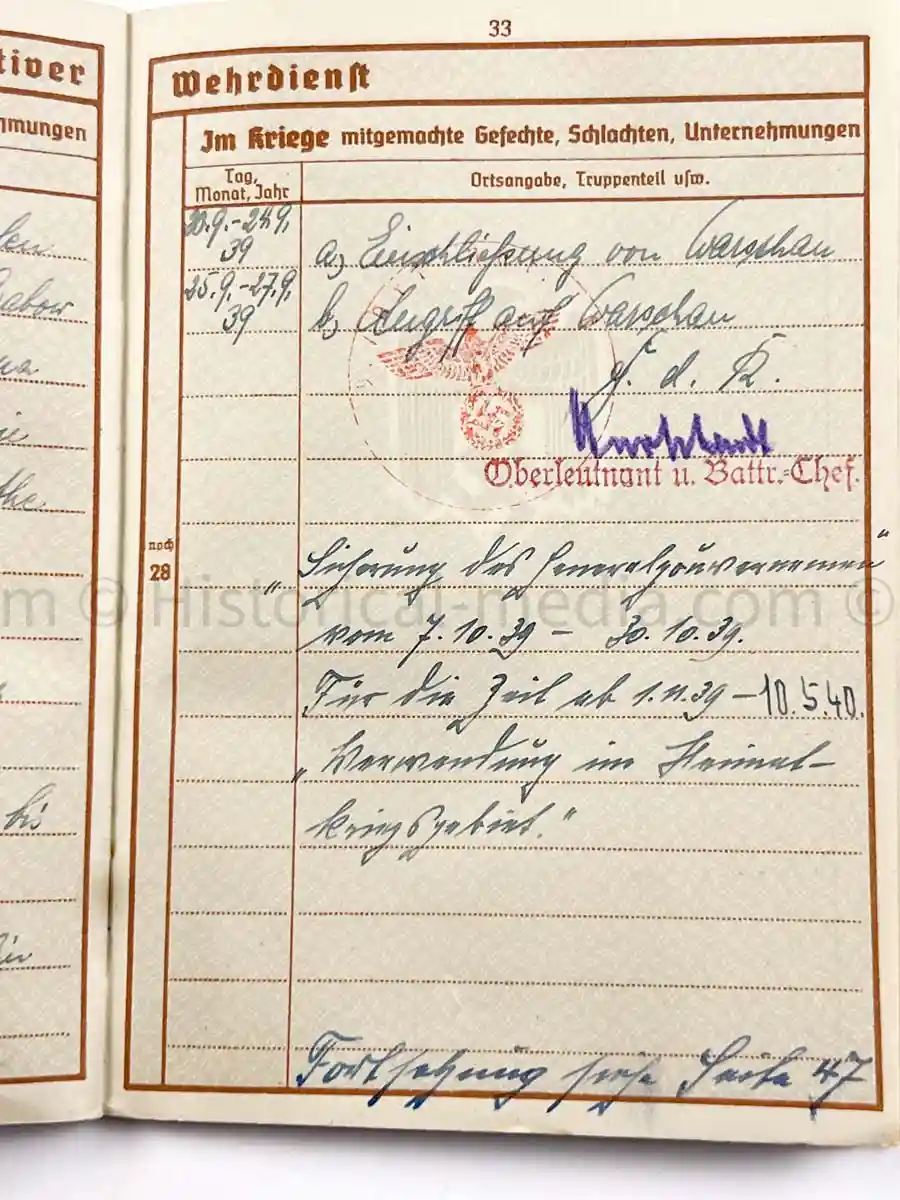 33
tiver
Wehrdienst
hmungen
Im Kriege mitgemachte Gefechte, Schlachten, Unternehmungen
Tag, Monat, Jahr
Ortsangabe, Truppenteil usw.
39
a) Einschließung von Warschau
25.9.-27.9. 39
b) Angriff auf Warschau
F. d. R.
Oberleutnant u. Battr.-Chef.
noch 28
"Sicherung des Generalgouvernemen"
vom 7.10.39 - 30.10.39.
Für die Zeit ab 1.11.39 - 10.5.40.
"Verwendung im Heimat-
kriegsgebiet."
bis
Fortsetzung siehe Seite 47
m © Historical-media.com ©